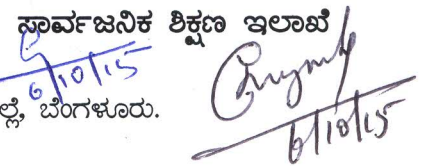 ಸಾರ್ವಜನಿಕ ಶಿಕ್ಷಣ ಇಲಾಖೆ
6/10/15
ಲ್ಲೆ, ಬೆಂಗಳೂರು.
6/10/15